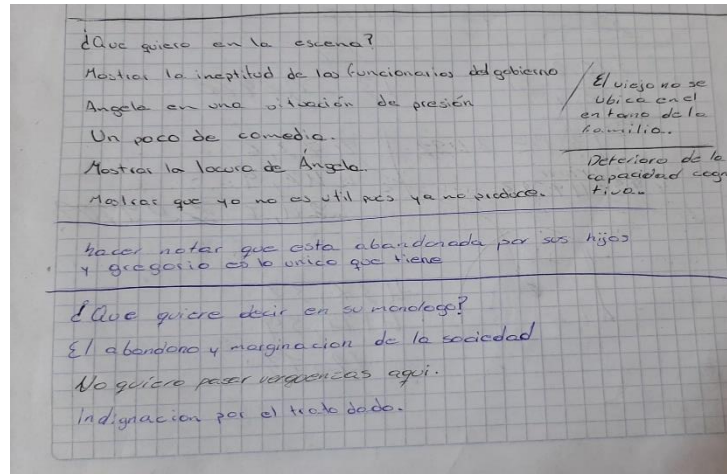 ¿Que quiero en la escena?
Mostrar la ineptitud de los funcionarios del gobierno
Angela en una situación de presión
Un poco de comedia.
Mostrar la locura de Ángela.
Mostrar que ya no es util pues ya no produce.
El viejo no se
ubica en el
entorno de la
familia..
Deterioro de la
capacidad cogni
tiva..
hacer notar que esta abandonada por sus hijos
y gregorio es lo unico que tiene
¿Que quiere decir en su monologo?
El abandono y marginacion de la sociedad
No quiero pasar verguencas aqui.
Indignacion por el trato dado.